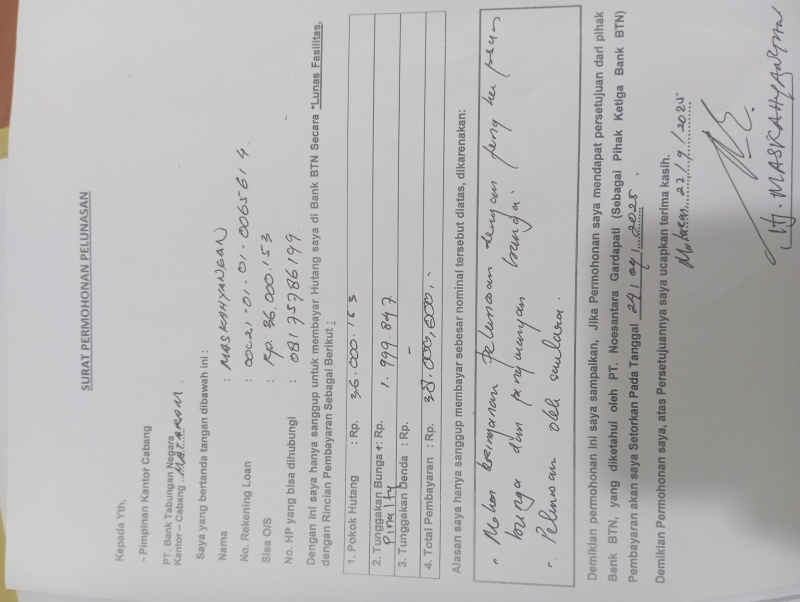 SURAT PERMOHONAN PELUNASAN
Kepada Yth,
- Pimpinan Kantor Cabang
PT. Bank Tabungan Negara
Kantor – Cabang MATARAM
Saya yang bertanda tangan dibawah ini :
Nama : MASKAHYANGAN
No. Rekening Loan : 00021-01-01-0065614
Sisa O/S : Rp. 36.000.153
No. HP yang bisa dihubungi : 08175786199
Dengan ini saya hanya sanggup untuk membayar Hutang saya di Bank BTN Secara "Lunas Fasilitas,
dengan Rincian Pembayaran Sebagai Berikut :
1. Pokok Hutang : Rp. 36.000.153
2. Tunggakan Bunga +: Rp. 1.999.847
Pinalty
3. Tunggakan Denda : Rp. -
4. Total Pembayaran : Rp. 38.000,000,-
Alasan saya hanya sanggup membayar sebesar nominal tersebut diatas, dikarenakan:
- Mohon keringanan pelunasan dengan
bunga dan tunggakan bunga.
- Pelunasan oleh saudara.
Demikian permohonan ini saya sampaikan, Jika Permohonan saya mendapat persetujuan dari pihak
Bank BTN, yang diketahui oleh PT. Noesantara Gardapati (Sebagai Pihak Ketiga Bank BTN)
Pembayaran akan saya Setorkan Pada Tanggal 24/09/2025.
Demikian Permohonan saya, atas Persetujuannya saya ucapkan terima kasih.
Mataram 22/9/2025
Hj. MASKAHYANGAN